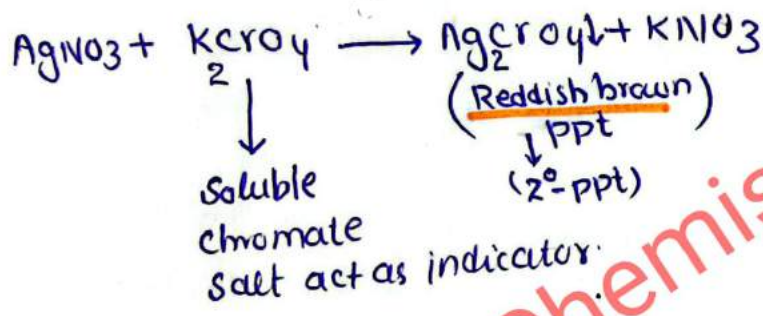 AgNO3 + K2CrO4 → Ag2CrO4↓ + KNO3
(Reddish brown)
ppt
↓
(2°-ppt)
↓
Soluble
chromate
salt act as indicator.
chemis